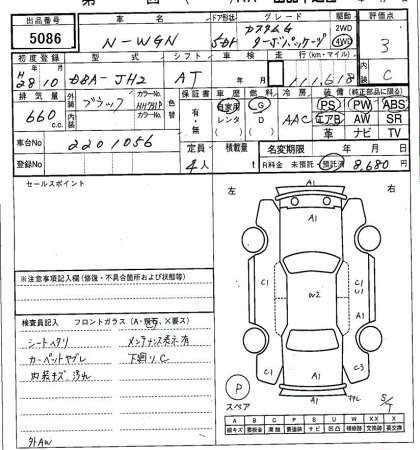 出品番号 5086
車名 N-WGN
ドア形状 5Dr
グレード カスタムG ターボパッケージ
駆動 2WD 4WD
評価点 3
内装 C
初度登録 H28年10月
型式 DBA-JH2
シフト AT
車検 年 月
走行(km・マイル) 111,618
排気量 660 c.c.
外装 ブラック
カラーNo.
色替
カラーNo.
保証書 有・無
車歴 自家用 レンタ
燃料 G D
冷房 AAC
装備(純正部品に限る)
PS PW ABS
エアB AW SR
革 ナビ TV
車台No 2201056
登録No
定員 4人
積載量 t
名変期限 年 月 日
R料金 未預託 預託済 8,680円
セールスポイント
左 右
※注意事項記入欄(修復・不具合箇所および状態等)
検査員記入 フロントガラス(A・飛石・X要ス)
シートヘタリ メンテナンス表示有
カーペットヤブレ 下廻りC
内装キズ、汚れ
外AW
A1
A1
C1 C1
U1
W2
C1 C3
A1
A1
P
スペア
S/T
A B C P S U W XX X
線キズ 要板金 腐蝕 要塗装 サビ 凹凸 補修跡 交換跡 要交換